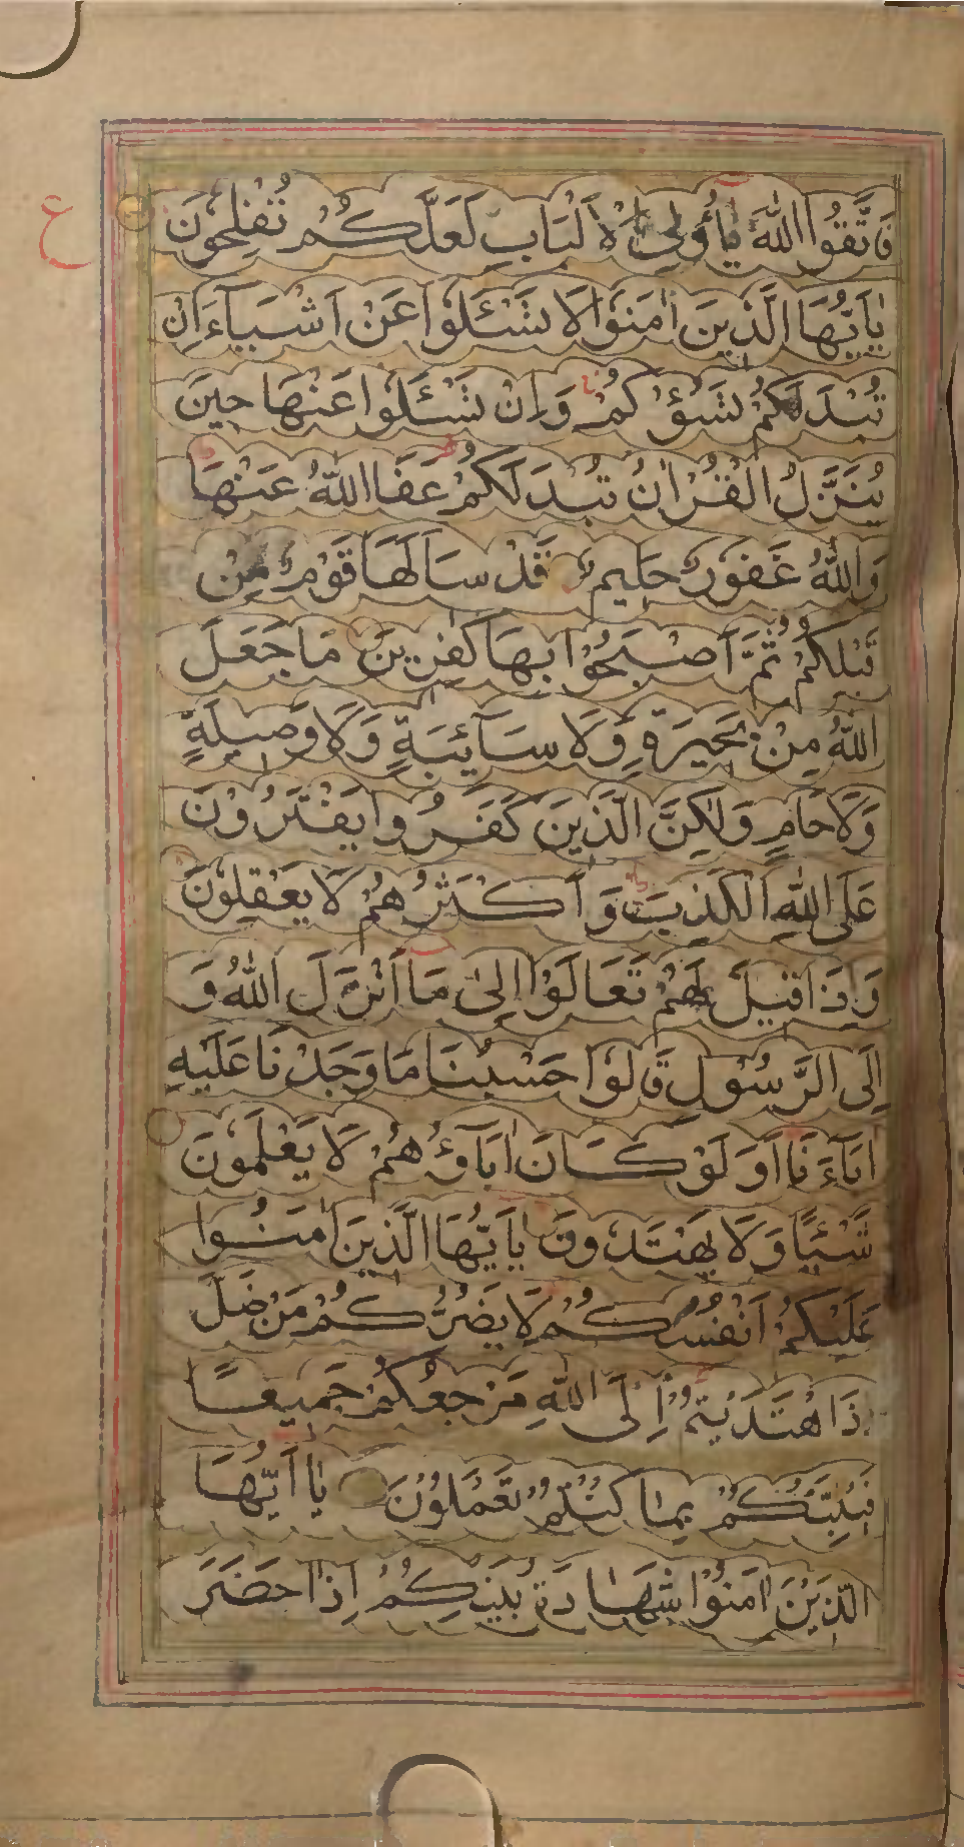 ع
فَاتَّقُوا اللّٰهَ يٰٓاُولِى الْاَلْبَابِ لَعَلَّكُمْ تُفْلِحُونَ
يٰٓاَيُّهَا الَّذِينَ اٰمَنُوا لَا تَسْئَلُوا عَنْ اَشْيَآءَ اِنْ
تُبْدَ لَكُمْ تَسُؤْكُمْ وَاِنْ تَسْئَلُوا عَنْهَا حِينَ
يُنَزَّلُ الْقُرْاٰنُ تُبْدَ لَكُمْ عَفَا اللّٰهُ عَنْهَا
وَاللّٰهُ غَفُورٌ حَلِيمٌ قَدْ سَاَلَهَا قَوْمٌ مِنْ
قَبْلِكُمْ ثُمَّ اَصْبَحُوْا بِهَا كٰفِرِينَ مَا جَعَلَ
اللّٰهُ مِنْ بَحِيرَةٍ وَلَا سَآئِبَةٍ وَلَا وَصِيلَةٍ
وَلَا حَامٍ وَلٰكِنَّ الَّذِينَ كَفَرُوا يَفْتَرُوْنَ
عَلَى اللّٰهِ الْكَذِبَ وَاَكْثَرُهُمْ لَا يَعْقِلُوْنَ
وَاِذَا قِيلَ لَهُمْ تَعَالَوْا اِلىٰ مَا اَنْزَلَ اللّٰهُ وَ
اِلَى الرَّسُوْلِ قَالُوْا حَسْبُنَا مَا وَجَدْنَا عَلَيْهِ
اٰبَآءَنَا اَوَلَوْ كَانَ اٰبَآؤُهُمْ لَا يَعْلَمُونَ
شَيْئًا وَلَا يَهْتَدُونَ يٰٓاَيُّهَا الَّذِينَ اٰمَنُوا
عَلَيْكُمْ اَنْفُسَكُمْ لَا يَضُرُّكُمْ مَنْ ضَلَّ
اِذَا اهْتَدَيْتُمْ اِلَى اللّٰهِ مَرْجِعُكُمْ جَمِيعًا
فَيُنَبِّئُكُمْ بِمَا كُنْتُمْ تَعْمَلُوْنَ يٰٓا اَيُّهَا
الَّذِيْنَ اٰمَنُوْا شَهَادَةُ بَيْنِكُمْ اِذَا حَضَرَ